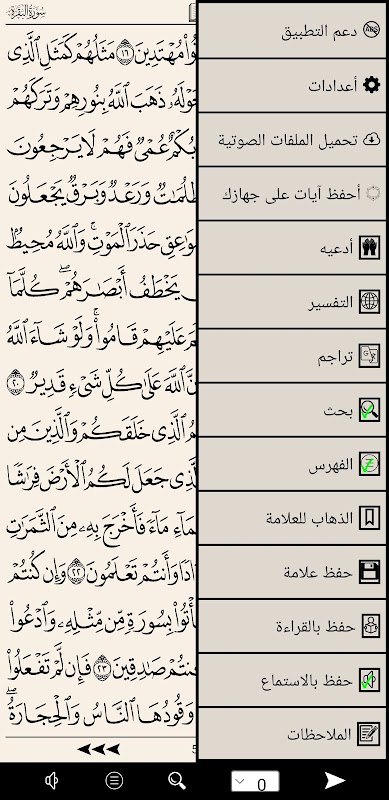 سورة البقرة
وا۟ مُهْتَدِينَ ١٦ مَثَلُهُمْ كَمَثَلِ ٱلَّذِى
حَوْلَهُۥ ذَهَبَ ٱللَّهُ بِنُورِهِمْ وَتَرَكَهُمْ
بُكْمٌ عُمْىٌ فَهُمْ لَا يَرْجِعُونَ
ظُلُمَٰتٌ وَرَعْدٌ وَبَرْقٌ يَجْعَلُونَ
وَٰعِقِ حَذَرَ ٱلْمَوْتِ ۚ وَٱللَّهُ مُحِيطٌۢ
يَخْطَفُ أَبْصَٰرَهُمْ ۖ كُلَّمَآ
عَلَيْهِمْ قَامُوا۟ ۚ وَلَوْ شَآءَ ٱللَّهُ
ٱللَّهَ عَلَىٰ كُلِّ شَىْءٍ قَدِيرٌ ٢٠
مُ ٱلَّذِى خَلَقَكُمْ وَٱلَّذِينَ مِن
ٱلَّذِى جَعَلَ لَكُمُ ٱلْأَرْضَ فِرَٰشًا
مَآءِ مَآءً فَأَخْرَجَ بِهِۦ مِنَ ٱلثَّمَرَٰتِ
دَادًا وَأَنتُمْ تَعْلَمُونَ ٢٢ وَإِن كُنتُمْ
فَأْتُوا۟ بِسُورَةٍ مِّن مِّثْلِهِۦ وَٱدْعُوا۟
كُنتُمْ صَٰدِقِينَ ٢٣ فَإِن لَّمْ تَفْعَلُوا۟
وَقُودُهَا ٱلنَّاسُ وَٱلْحِجَارَةُ ۖ
دعم التطبيق
أعدادات
تحميل الملفات الصوتية
أحفظ آيات على جهازك
أدعيه
التفسير
تراجم
بحث
الفهرس
الذهاب للعلامة
حفظ علامة
حفظ بالقراءة
حفظ بالاستماع
الملاحظات
0